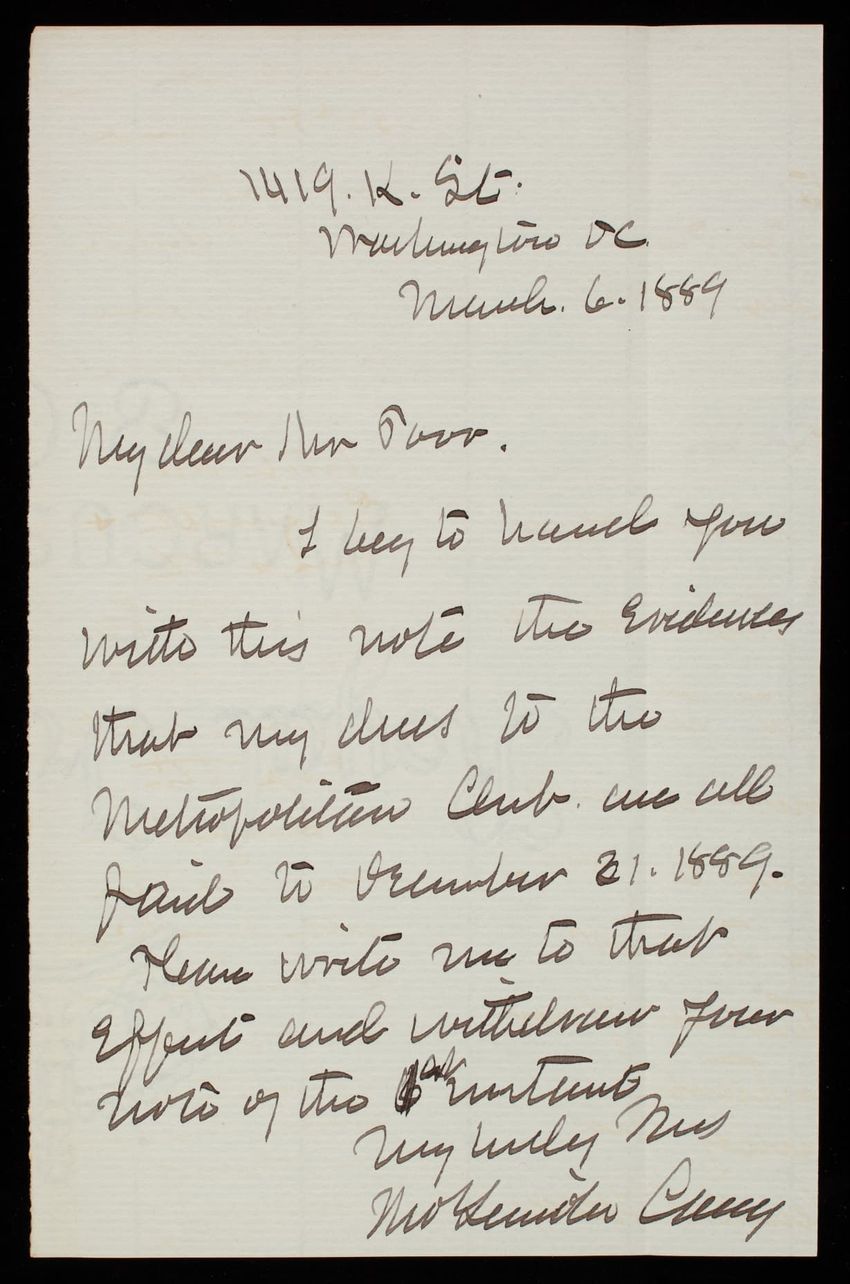 1419. K. St.
Washington DC.
March. 6. 1889
My dear Mr
I beg to hand you
with this note the Evidences
that my dues to the
Metropolitan Club. are all
paid to December 31. 1889.
Please write me to that
Effect and withdraw your
note of the instant
Truly Yours
Casey